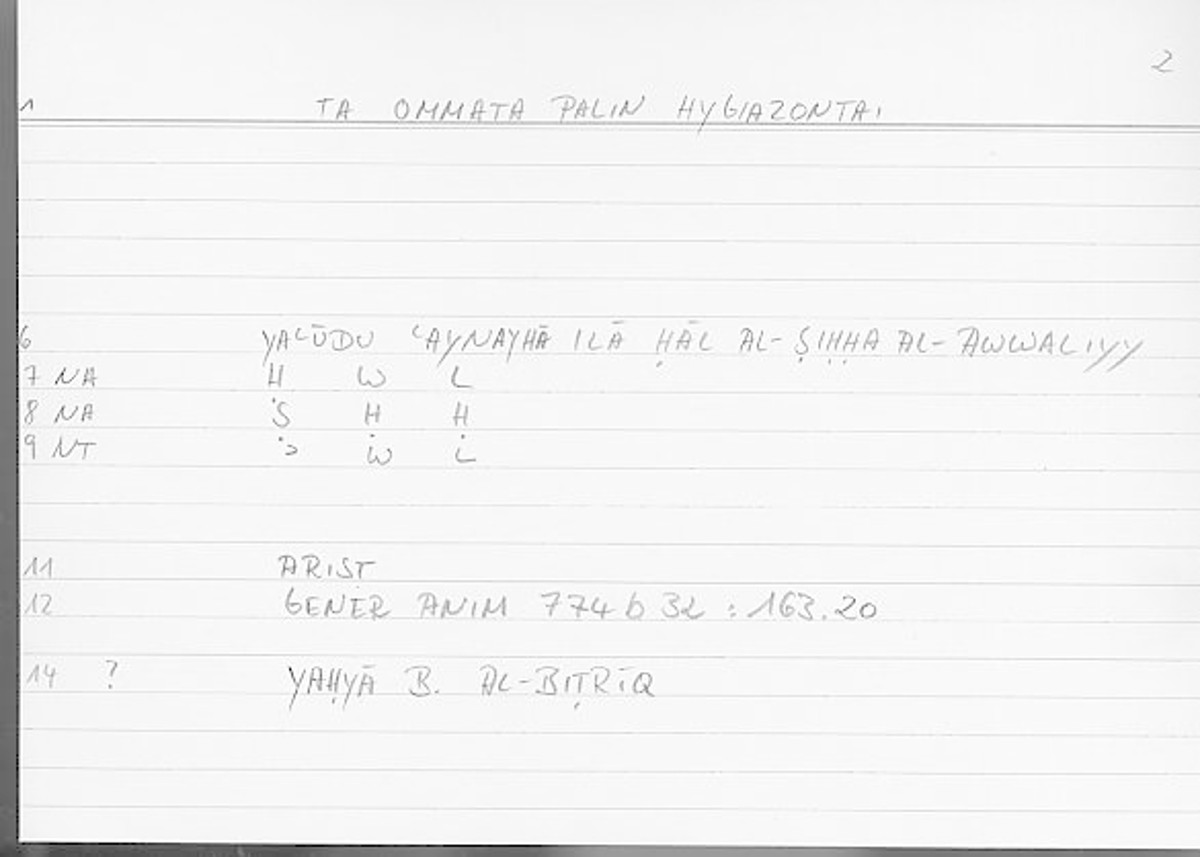 2
1 TA OMMATA PALIN HYGIAZONTAI
6 YAʿŪDU ʿAYNAYHĀ ILĀ ḤĀL AL-ṢIḤḤA AL-AWWALIYY
7 NA Ḥ W L
8 NA Ṣ Ḥ Ḥ
9 NT ʾ W L
11 ARIST
12 GENER ANIM 774 b 32 : 163.20
14 ? YAḤYĀ B. AL-BIṬRĪQ